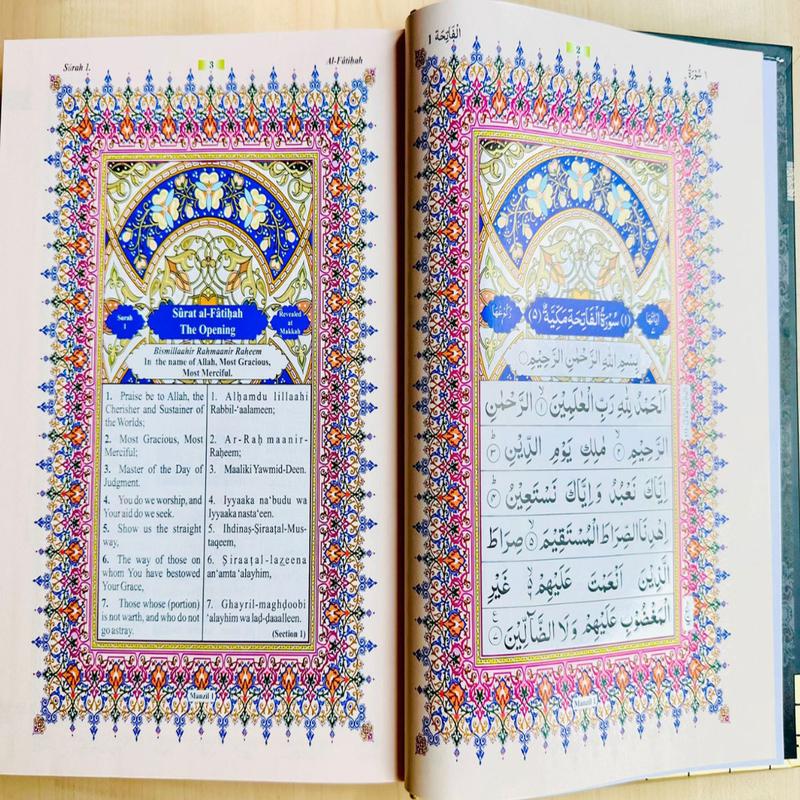 Sûrah 1.
3
Al-Fâtiḥah
Surah
1
Sûrat al-Fâtiḥah
The Opening
Revealed
at
Makkah
Bismillaahir Rahmaanir Raheem
In the name of Allah, Most Gracious,
Most Merciful.
1. Praise be to Allah, the
Cherisher and Sustainer of
the Worlds;
2. Most Gracious, Most
Merciful;
3. Master of the Day of
Judgment.
4. You do we worship, and
Your aid do we seek.
5. Show us the straight
way,
6. The way of those on
whom You have bestowed
Your Grace,
7. Those whose (portion)
is not warth, and who do not
go astray.
1. Alḥamdu lillaahi
Rabbil-‘aalameen;
2. Ar-Raḥmaanir-
Raḥeem;
3. Maaliki Yawmid-Deen.
4. Iyyaaka na‘budu wa
Iyyaaka nasta‘een.
5. Ihdinaṣ-Ṣiraaṭal-Mus-
taqeem,
6. Ṣiraaṭal-laẓeena
an‘amta ‘alayhim,
7. Ghayril-maghḍoobi
‘alayhim wa laḍ-ḍaaalleen.
(Section 1)
Manzil 1
الْفَاتِحَة 1
2
سُورَةُ ١
(١) سُوْرَةُ الْفَاتِحَةِ مَكِّيَّةٌ (٥)
بِسْمِ اللهِ الرَّحْمٰنِ الرَّحِيْمِ
اَلْحَمْدُ لِلّٰهِ رَبِّ الْعٰلَمِيْنَ ١ الرَّحْمٰنِ
الرَّحِيْمِ ٢ مٰلِكِ يَوْمِ الدِّيْنِ ٣
اِيَّاكَ نَعْبُدُ وَاِيَّاكَ نَسْتَعِيْنُ ٤
اِهْدِنَا الصِّرَاطَ الْمُسْتَقِيْمَ ٥ صِرَاطَ
الَّذِيْنَ اَنْعَمْتَ عَلَيْهِمْ ٦ غَيْرِ
الْمَغْضُوْبِ عَلَيْهِمْ وَلَا الضَّآلِّيْنَ ٧
Manzil 1